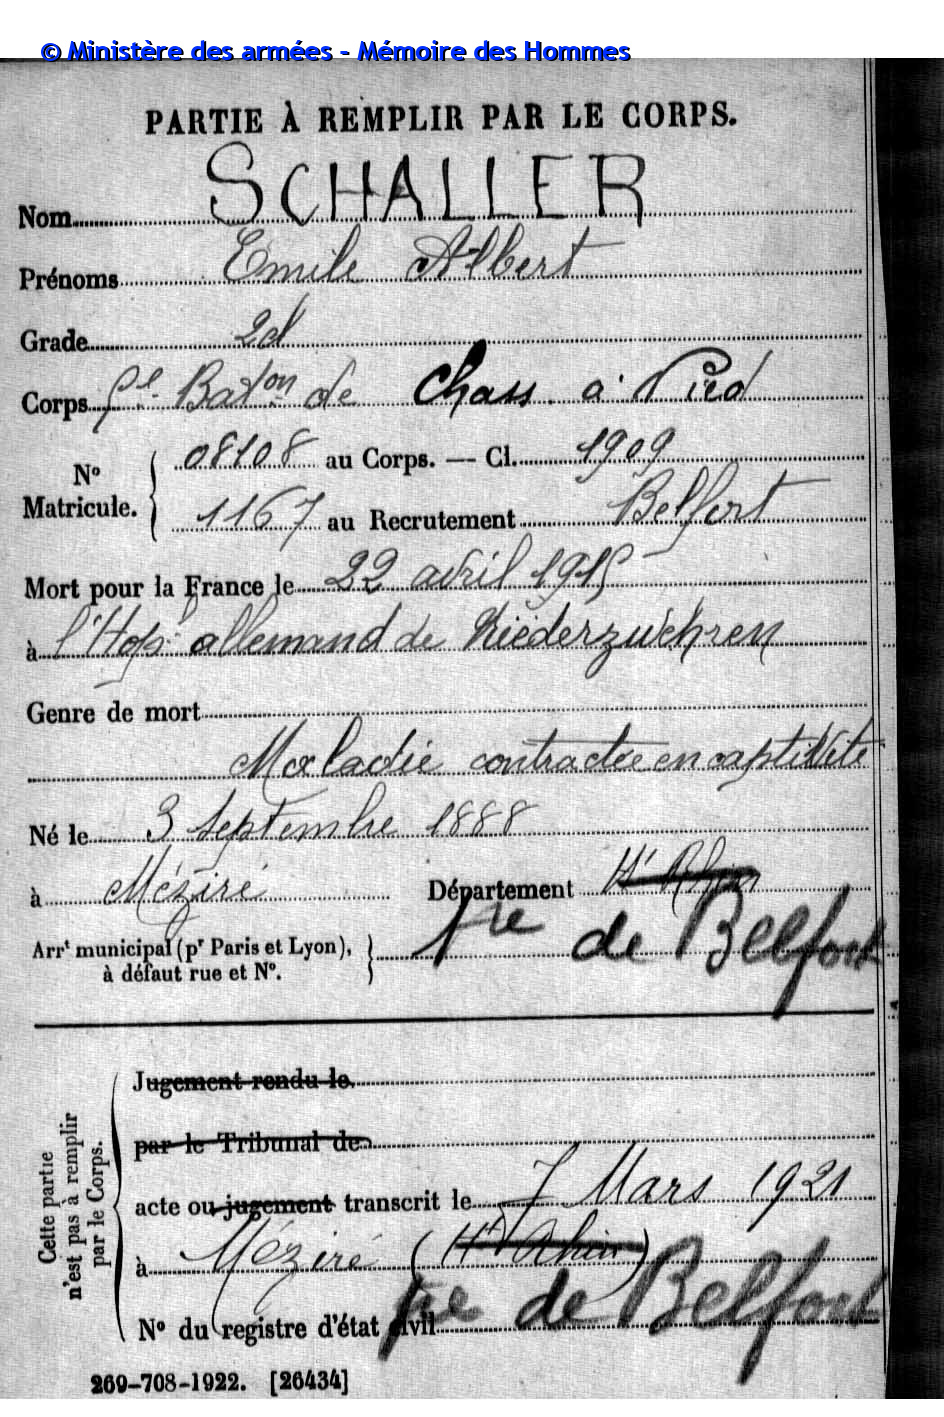 © Ministère des armées - Mémoire des Hommes
PARTIE À REMPLIR PAR LE CORPS.
Nom SCHALLER
Prénoms Emile Albert
Grade 2d
Corps Bat^on de Chass. à Pied
N° Matricule. 08108 au Corps. — Cl. 1909
1167 au Recrutement Belfort
Mort pour la France le 22 avril 1915
à l'Hop^l allemand de Niederzwehren
Genre de mort
Maladie contractée en captivité
Né le 3 Septembre 1888
à Méziré Département H^t Rhin
Arr^t municipal (p^r Paris et Lyon), à défaut rue et N°. t^re de Belfort
Cette partie n'est pas à remplir par le Corps.
Jugement rendu le
par le Tribunal de
acte ou jugement transcrit le 7 Mars 1921
à Méziré (H^t Rhin)
t^re de Belfort
N° du registre d'état civil
269-708-1922. [26434]